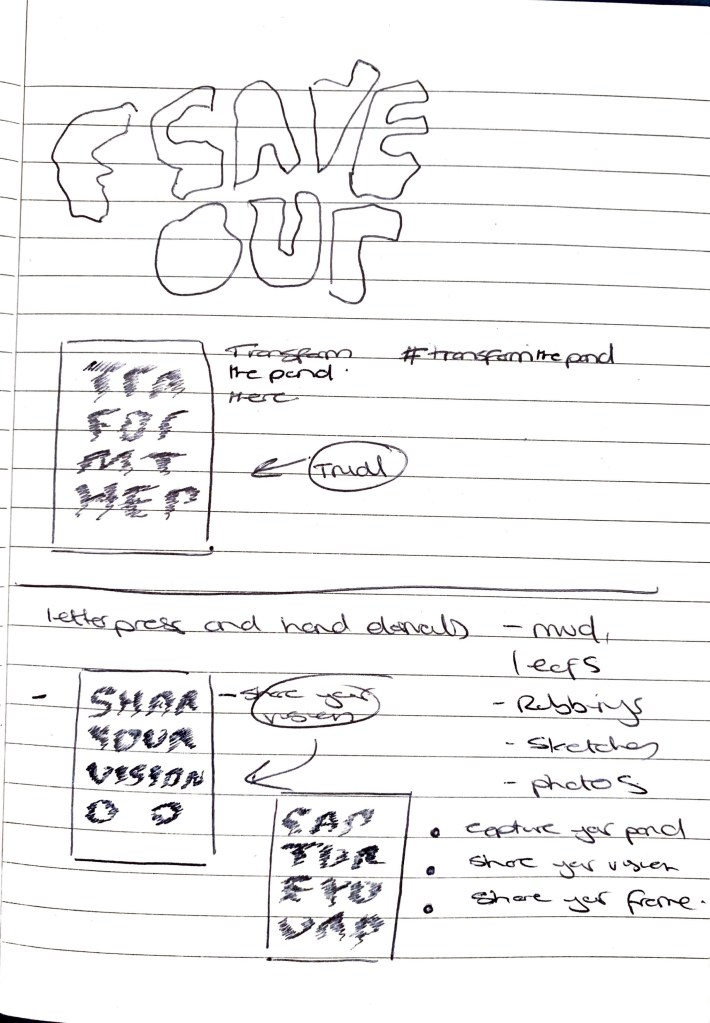 SAVE
OUR
TRA
FOR
MT
HEP
Transform
the pond.
Here
#transformthepond
letterpress and hand
- mud,
leafs
- Rubbings
- Sketches
- photos
- SHAR
YOUR
VISION
- share your
vision
CAP
TUR
EYO
URP
• capture your pond
• share your vision
• share your frame.